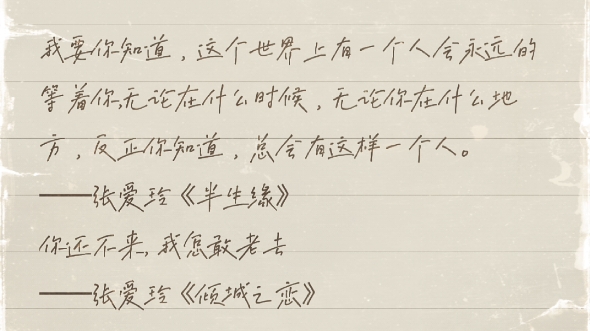 我要你知道，这个世界上有一个人会永远的
等着你,无论在什么时候，无论你在什么地
方，反正你知道，总会有这样一个人。
——张爱玲《半生缘》
你还不来,我怎敢老去
——张爱玲《倾城之恋》